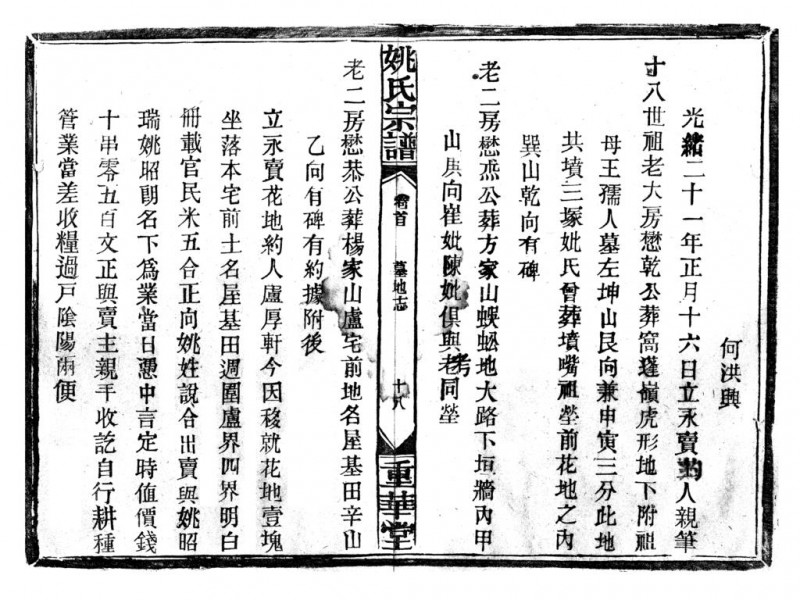 何洪興
光緒二十一年正月十六日立永賣約人親筆
十八世祖老大房懋乾公葬窩蓬嶺虎形地下附祖
母王孺人墓左坤山艮向兼申寅三分此地
共墳三塚妣氏曾葬墳嘴祖塋前花地之內
巽山乾向有碑
老二房懋烝公葬方家山蜈蚣地大路下垣牆內甲
山庚向崔妣陳妣俱與老考同塋
姚氏宗譜 卷首 墓地志 十八 重華堂
老二房懋恭公葬楊家山盧宅前地名屋基田辛山
乙向有碑有約據附後
立永賣花地約人盧厚軒今因移就花地壹塊
坐落本宅前土名屋基田週圍盧界四界明白
冊載官民米五合正向姚姓說合出賣與姚昭
瑞姚昭朗名下為業當日憑中言定時值價錢
十串零五百文正與賣主親手收訖自行耕種
管業當差收糧過戶陰陽兩便